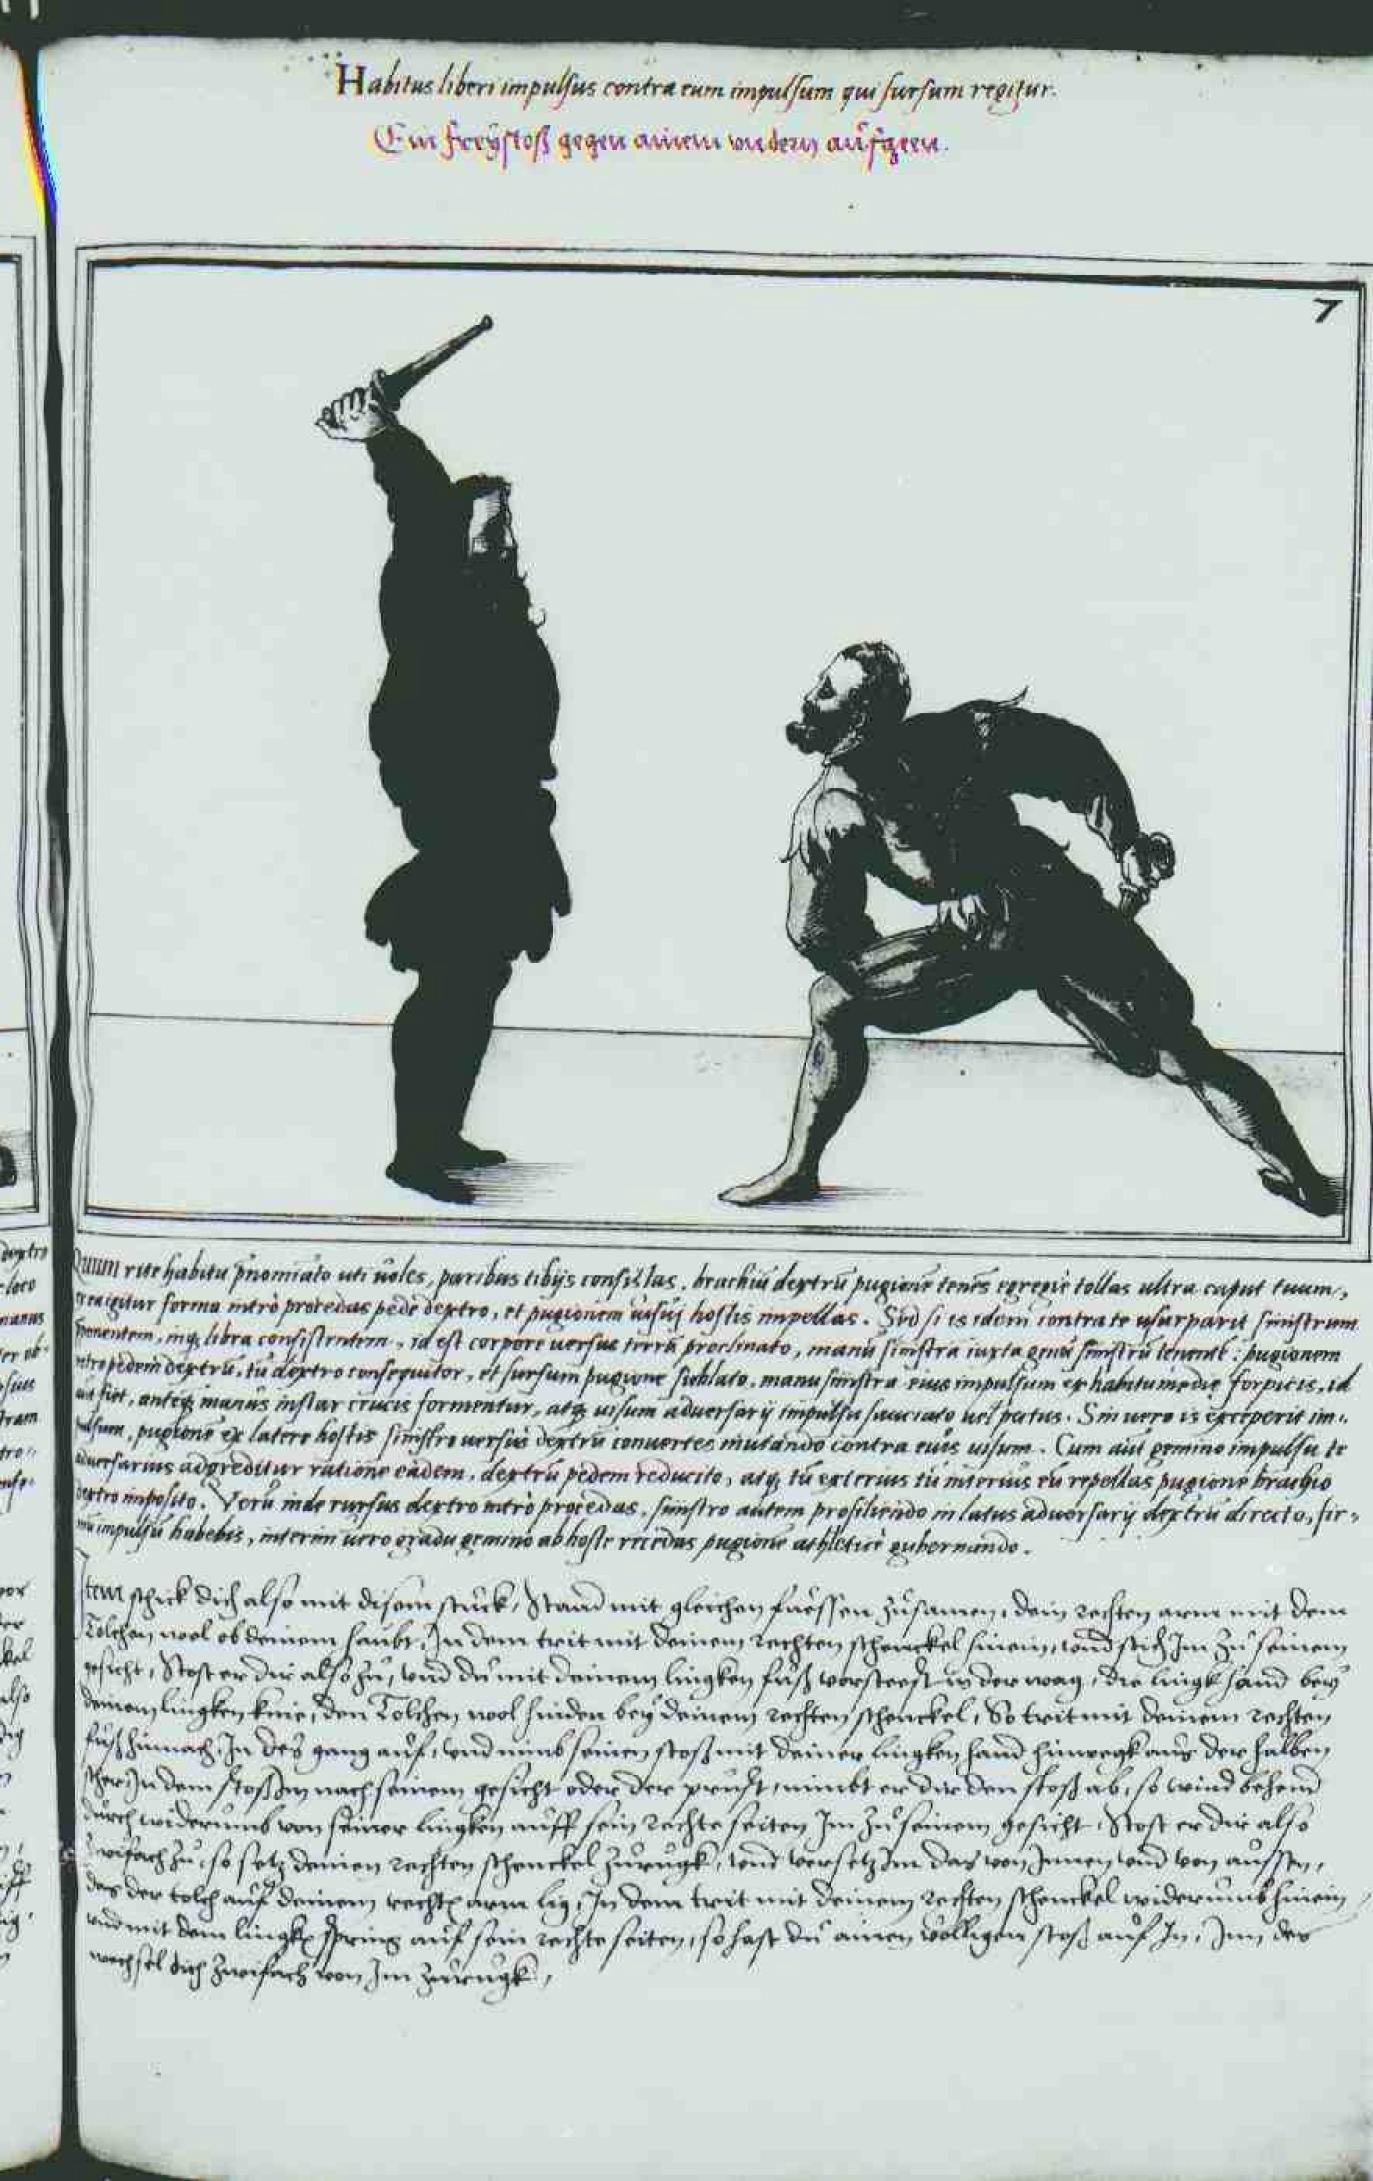 Habitus liberi impulsus contra eum impulsum qui sursum regitur.
Ein freÿstoß gegen ainem undern aufgeen.
7
Quum rite habitu pnomiato uti uoles, paribus tibijs consistas. brachiu dextru pugione tenes egregie tollas ultra caput tuum,
igitur forma intro procedas pede dextro, et pugionem uisuj hostis impellas. Sed si is idem contra te usurparit sinistrum
ponentem, inq; libra consistentem, id est corpore uersus terra proclinato, manu sinistra iuxta genu sinistru tenente: pugionem
retro pedem dextru, tu dextro consequitor, et sursum pugione sublato, manu sinistra eius impulsum ex habitu medie forpicis, id
fiet, anteq; manus instar crucis formentur, atq; uisum aduersarij impulsu sauciato uel pectus. Sin uero is exceperit im-
pulsum, pugione ex latere hostis sinistro uersus dextru conuertes mutando contra eius uisum. Cum aut gemino impulsu te
aduersarius adgreditur ratione eadem, dextru pedem reducito, atq; tu exterius tu interius eu repellas pugione brachio
dextro imposito. Veru inde rursus dextro intro procedas, sinistro autem prosiliendo in latus aduersarij dextru directo, fir-
mu impulsu habebis, interim uero gradu gemino ab hoste recedas pugione athletice gubernando.
Item schick dich also mit disem stuck, Stand mit gleichen fuessen zusamen, dein rechten arm mit dem
Tolchen wol ob deinem haubt, In dem trit mit deinem rechten schenckel hinein, und stich Im zu seinem
gesicht, Stost er dir also zu, und du mit deinem lingken fuß vorsteest in der wag, die lingk hand bey
deinem lingken knie, den Tolchen wol hinden bey deinem rechten schenckel, So trit mit deinem rechten
fuß hinnach, In des gang auf, und nimb seinen stoß mit deiner lingken hand hinwegk aus der halben
scher In dem stoß Im nach seinem gesicht oder der prust, nimbt er dir den stoß ab, so wind behend
durch widerumb von seiner lingken auff sein rechte seiten Im zu seinem gesicht, Stost er dir also
zwifach zu, so setz deinen rechten schenckel zurugk, und versetz Im das von Innen und von aussen,
das der tolch auf deinem recht arm lig, In dem trit mit deinem rechten schenckel widerumb hinein
und mit dem lingk spring auf sein rechte seiten, so hast du ainen volligen stoß auf In, Inn des
wechsel dich zwifach von Im zurugk,